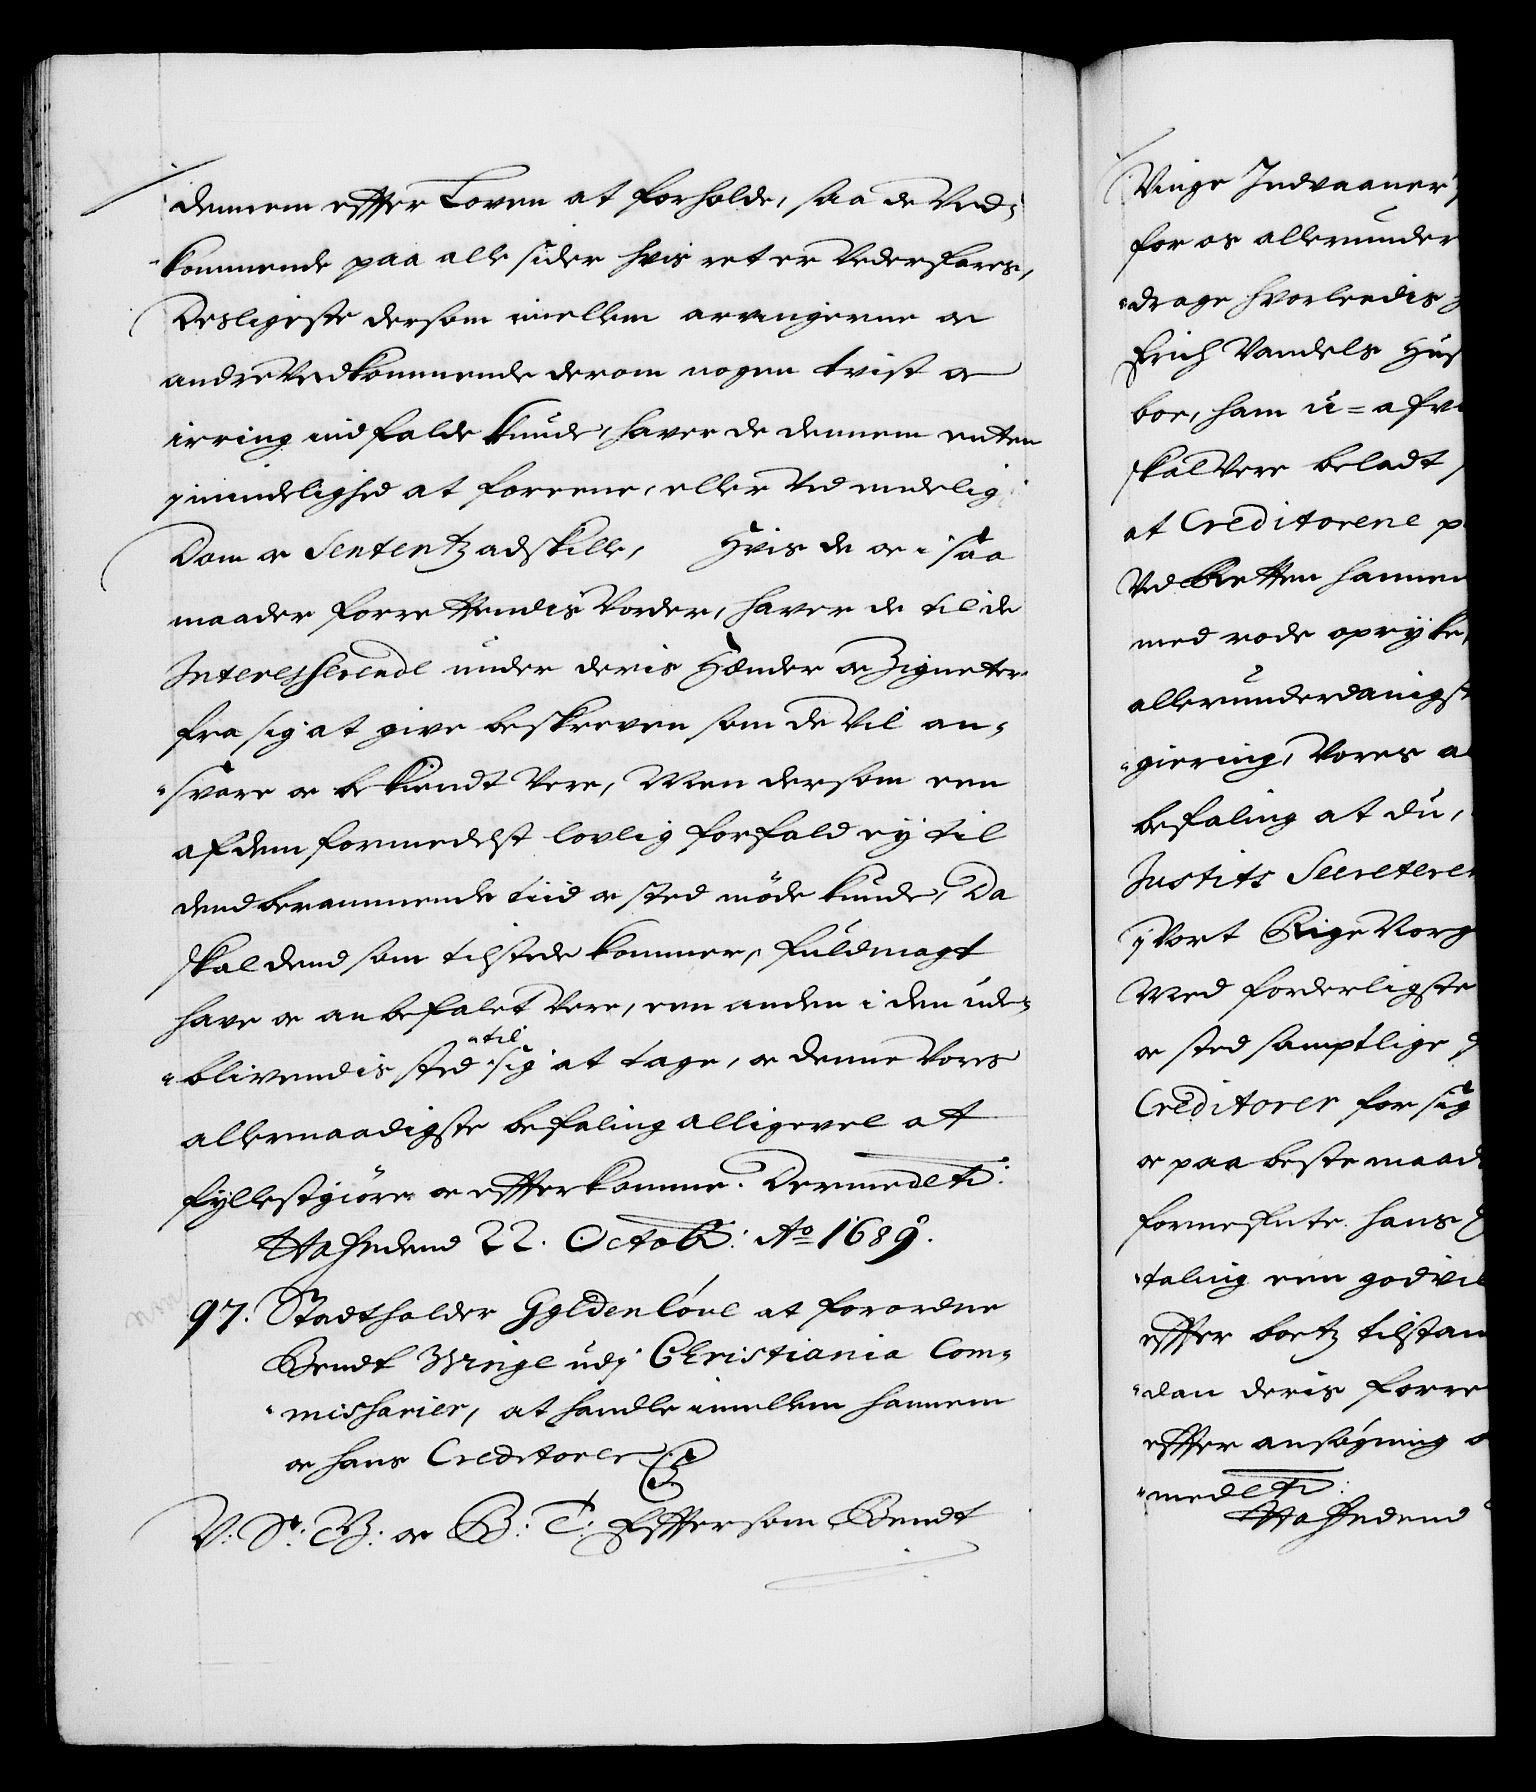 dennem effter Loven at forholde, saa de Ved¬
kommende paa alle sider hvis ret er Vederfares,
Desligeste dersom imellem arvingerne oc
andre Vedkommende derom nogen tvist oc
irring indfalde kunde, haver de dennem enten
j mindelighed at foreene, eller Ved endelig
Dom oc Sententz adskille, Hvis de oc i saa
maader forrettendis Vorder, haver de til de
Interesserende under deris Hænder oc Zigneter
fra sig at give beskreven som de Vil an¬
svare oc bekiendt Vere, Men dersom een
af dem formedelst lovlig forfald ey til
dend berammende tiid oc sted møde kunde, Da
skal dend som tilstede kommer, fuldmagt
have oc anbefalet Vere, een anden i den ude¬
blivendis sted til sig at tage, oc denne Vores
allernaadigste befaling alligevel at
fyllestgiøre oc effterkomme. Dermed etc:
Hafn dend 22. Octob: Ao 1689.
97. Stadtholder Gyldenløve at forordne
Bendt Winge udj Christiania Com¬
missarier, at handle imellem hannem
oc hans Creditorer
V: St: B: oc B: T: Effter som Bendt
Vinge Indvaaner
for os allerunder
drage hvorleedis
Erich Vandels Hus
boe, ham u=afvi
skal Vere beladt
at Creditorene p
Ved Retten hannem
med rode opryke,
allerunderdanigst
giering, Vores al
befaling at du,
Justits Secreterer
j Vort Rige Norg
Med forderligste
oc sted samptlige
Creditorer for sig
oc paa beste maade
fornefnte hans
taling een godvil
effter boetz tilstan
dan deris forre
effter ansøgning o
med etc:
Hafn dend